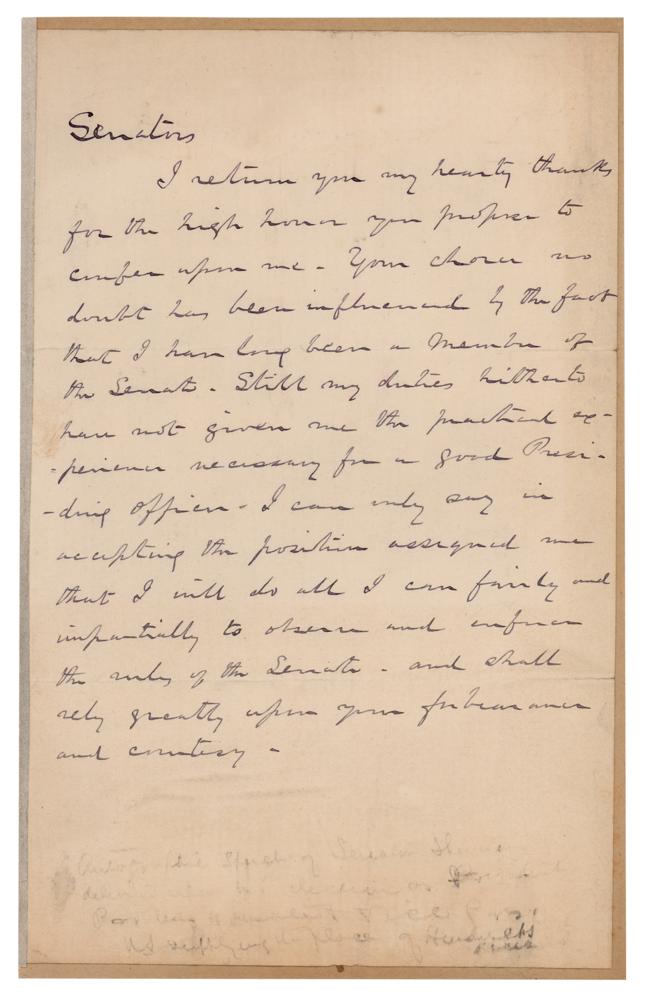 Senators
I return you my hearty thanks
for the high honor you propose to
confer upon me - Your choice no
doubt has been influenced by the fact
that I have long been a Member of
the Senate - Still my duties hitherto
have not given me the practical ex-
-perience necessary for a good Presi-
-ding officer - I can only say in
accepting the position assigned me
that I will do all I can fairly and
impartially to observe and enforce
the rules of the Senate - and shall
rely greatly upon your forbearance
and courtesy -
Speech of Senator
election as
place of